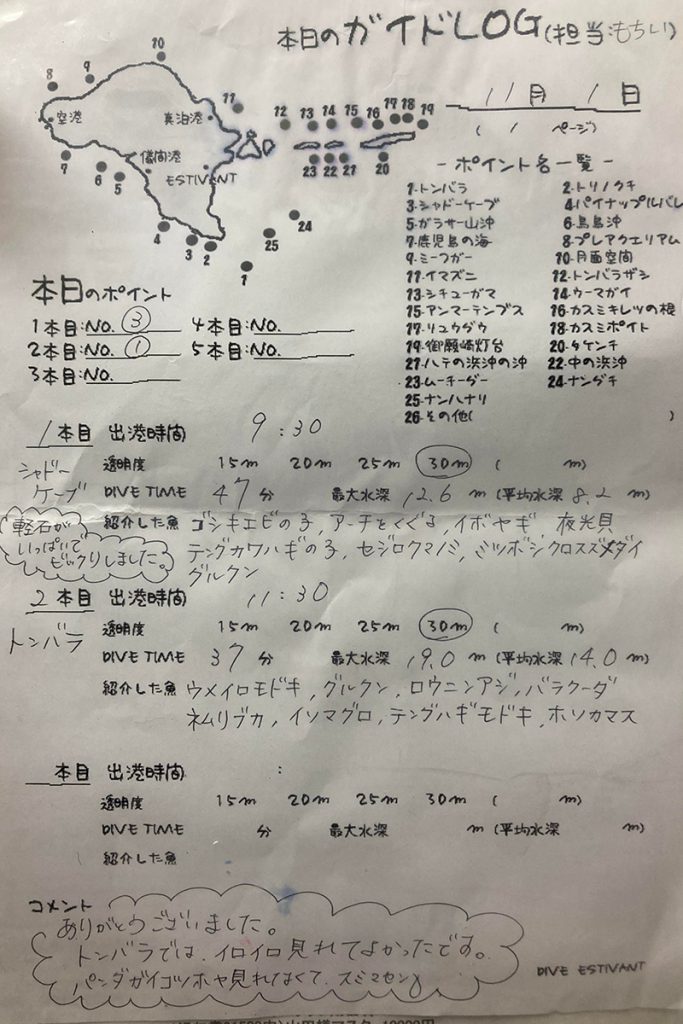 本日のガイドLOG(担当:もちい)
11月 1日
(1 ページ)
10
9
8
11
空港
真泊港
儀間港
ESTIVANT
7
6
5
4
3
2
1
12 13 14 15 16 17 18 19
23 22 21 20
24
25
- ポイント名一覧 -
1.トンバラ 2.トリノクチ
3.シャドーケーブ 4.パイナップルバレ
5.ガラサー山沖 6.鳥島沖
7.鹿児島の海 8.プレアクエリアム
9.ミーフガー 10.月面空間
11.イマズニ 12.トンバラザシ
13.シチューガマ 14.ウーマガイ
15.アンマーテンブス 16.カスミキレツの根
17.リュウダウ 18.カスミポイト
19.御願崎灯台 20.タケンチ
21.ハテの浜沖の沖 22.中の浜沖
23.ムーチーダー 24.ナンダチ
25.ナンハナリ
26.その他( )
本日のポイント
1本目:NO. ③ 4本目:NO.
2本目:NO. ① 5本目:NO.
3本目:NO.
1本目 出港時間 9:30
シャドーケーブ
透明度 15m 20m 25m 30m ( m)
DIVE TIME 47分 最大水深 12.6 m (平均水深 8.2 m)
軽石がいっぱいでビックリしました。
紹介した魚 ゴシキエビの子, アーチをくぐる, イボヤギ 夜光貝
テングカワハギの子, セジロクマノミ, ミツボシクロスズメダイ
グルクン
2本目 出港時間 11:30
トンバラ
透明度 15m 20m 25m 30m ( m)
DIVE TIME 37分 最大水深 19.0 m (平均水深 14.0 m)
紹介した魚 ウメイロモドキ, グルクン, ロウニンアジ, バラクーダ
ネムリブカ, イソマグロ, テングハギモドキ, ホソカマス
本目 出港時間 :
透明度 15m 20m 25m 30m ( m)
DIVE TIME 分 最大水深 m (平均水深 m)
紹介した魚
コメント
ありがとうございました。
トンバラでは、イロイロ見れてよかったです。
パンダガイコツホヤ見れてなくて、スミマセン
DIVE ESTIVANT